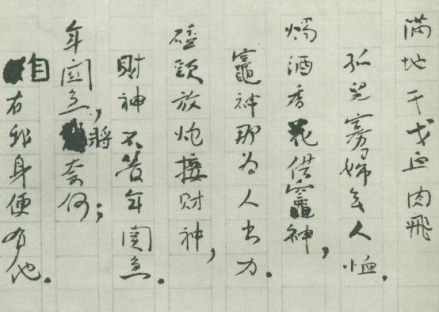 满地干戈血肉飞
孤兒寡婦无人恤.
燭酒香花供竈神,
竈神那为人出力.
磕頭放炮接財神,
財神不管年関急.
年関急,將奈何;
自有身便有他.